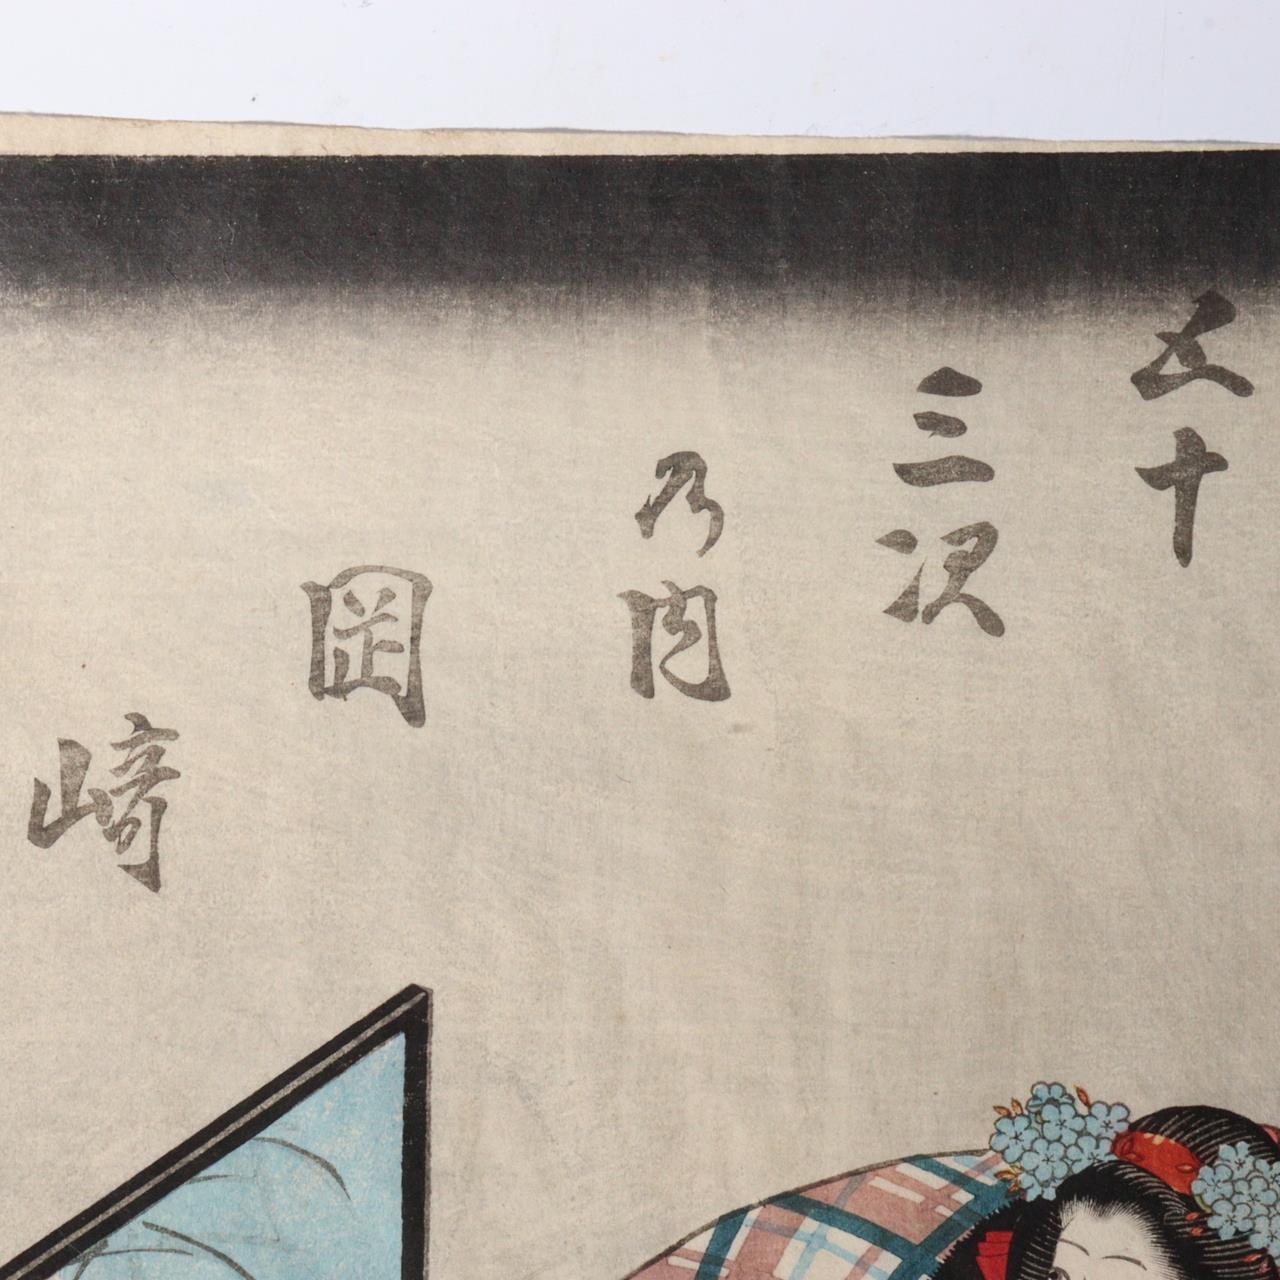 五十
三次
乃内
岡
崎